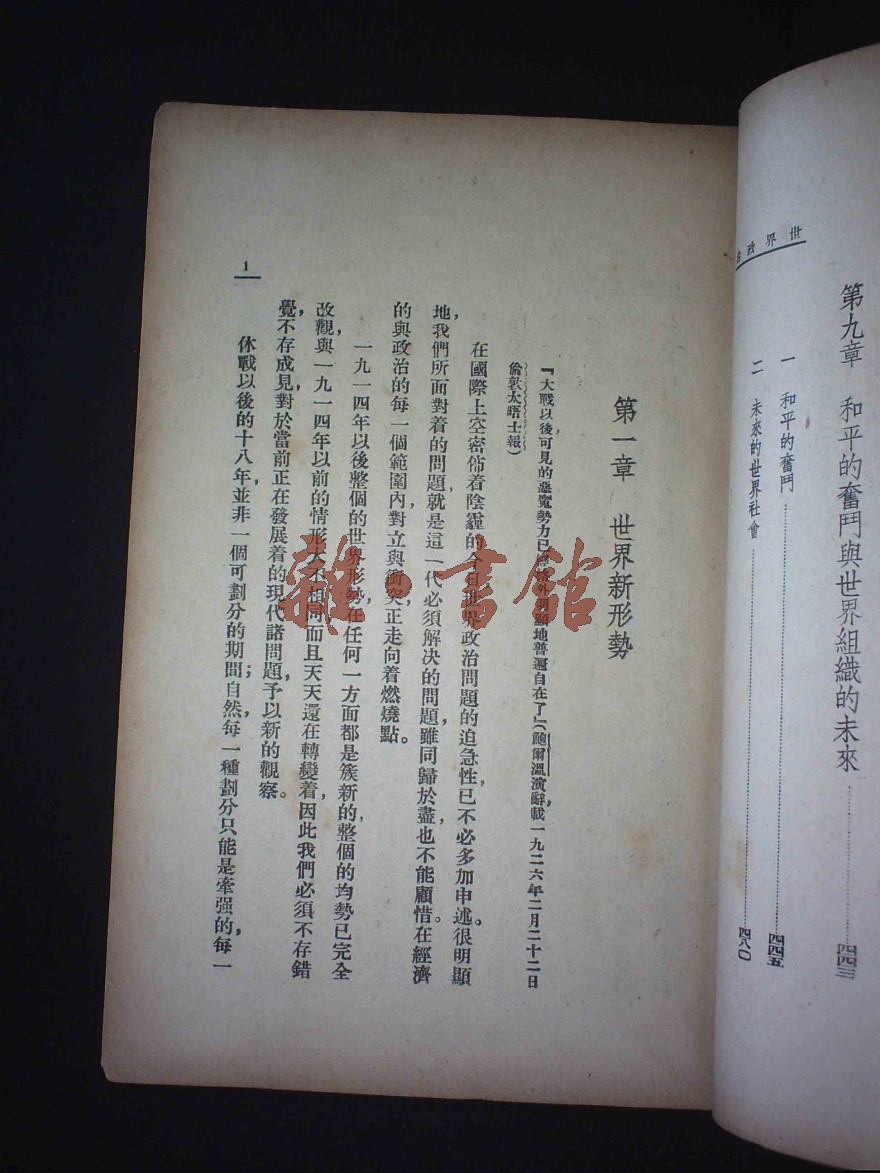 世界政治
第九章　和平的奮鬥與世界組織的未來……四四三
一　和平的奮鬥……四四五
二　未來的世界社會……四八〇
第一章　世界新形勢
「大戰以後，可見的惡魔勢力已　　　外明顯地普遍自在了」（鮑爾溫演辭，載一九二六年二月二十二日
倫敦太晤士報）
在國際上空密佈着陰霾的今日世界政治問題的迫急性，已不必多加申述。很明顯
地，我們所面對着的問題，就是這一代必須解決的問題，雖同歸於盡，也不能顧惜。在經濟
的與政治的每一個範圍內，對立與衝突，正走向着燃燒點。
一九一四年以後，整個的世界形勢，在任何一方面都是簇新的，整個的均勢已完全
改觀，與一九一四年以前的情形大不相同，而且天天還在轉變着，因此我們必須不存錯
覺，不存成見，對於當前正在發展着的現代諸問題，予以新的觀察。
休戰以後的十八年，並非一個可劃分的期間；自然，每一種劃分只能是牽强的，每一
1
雜·書館